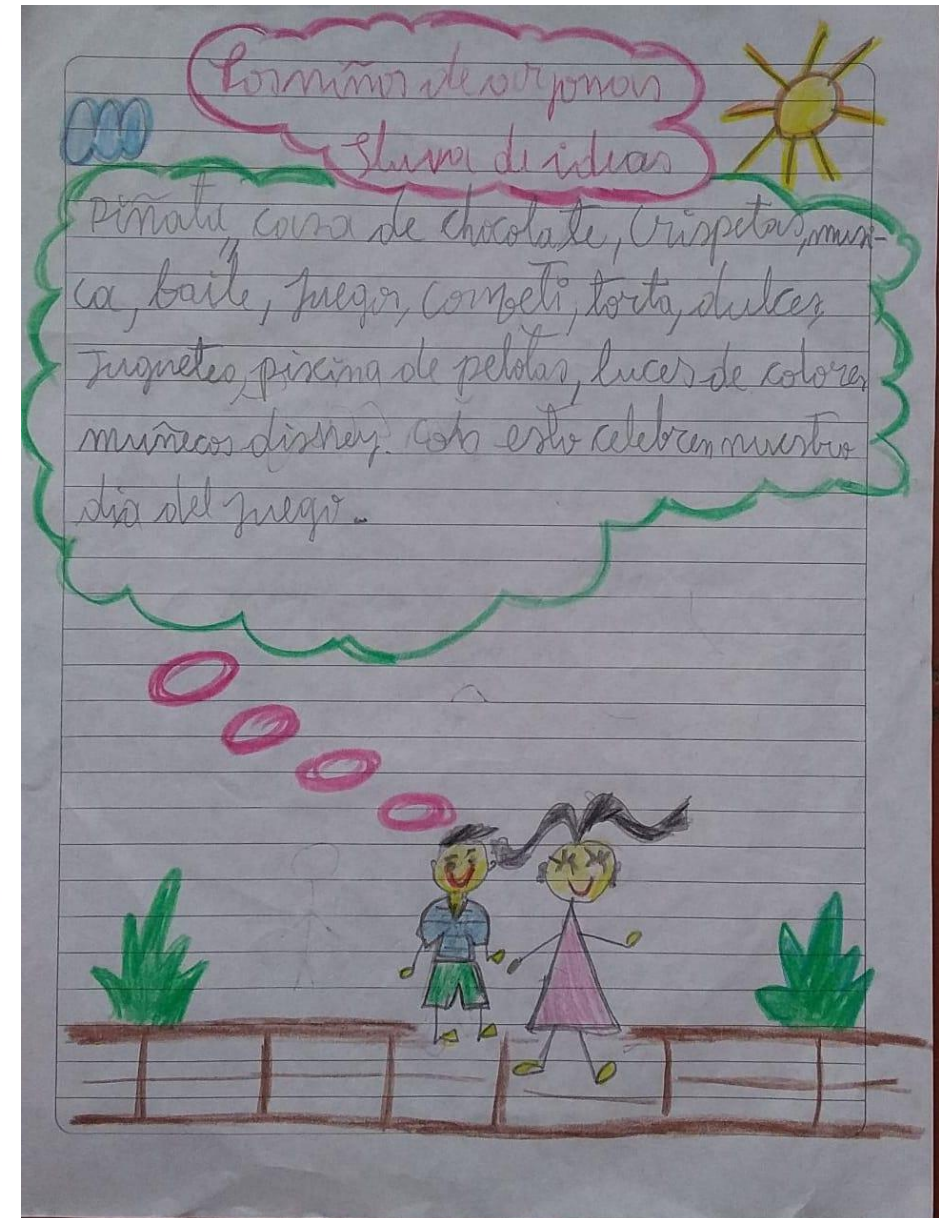 Los niños de arjonas
lluvia de ideas
Piñata, casa de chocolate, Crispetas, musi-
ca, baile, juegos, confeti, torta, dulces,
Juguetes, piscina de pelotas, luces de colores
muñecos disney. Con esto celebren nuestro
dia del juego.